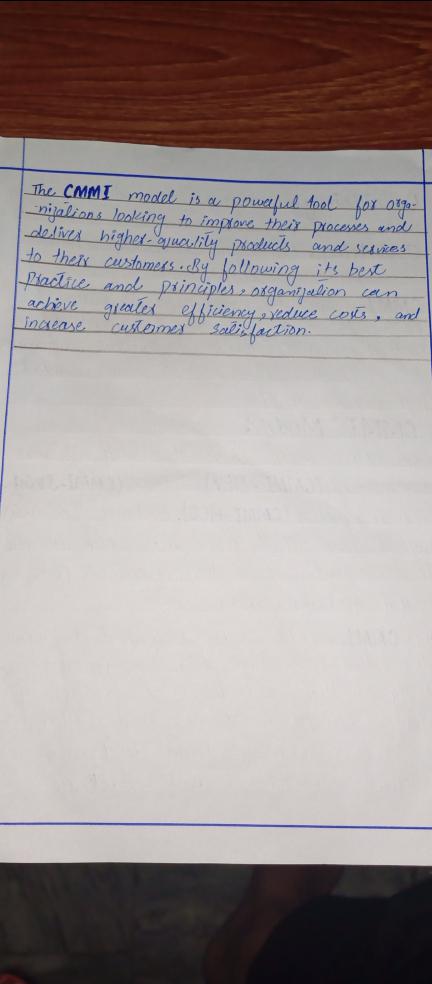 The CMMI model is a powerful tool for orga-
-nizations looking to improve their processes and
deliver higher-quality products and services
to their customers. By following its best
Practice and principles, organization can
achieve greater efficiency, reduce costs, and
increase customer satisfaction.